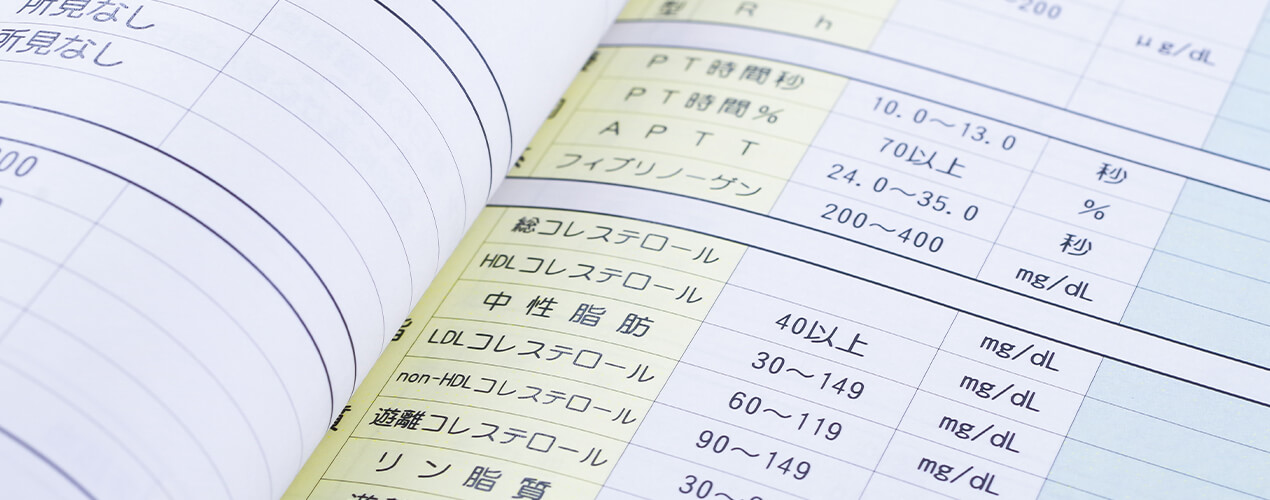 所見なし
所見なし
00
型 Rh
200
μg/dL
PT時間秒 10.0～13.0 秒
PT時間% 70以上 %
APTT 24.0～35.0 秒
フィブリノーゲン 200～400 mg/dL
総コレステロール
HDLコレステロール 40以上 mg/dL
中性脂肪 30～149 mg/dL
LDLコレステロール 60～119 mg/dL
non-HDLコレステロール 90～149 mg/dL
遊離コレステロール 30～
リン脂質